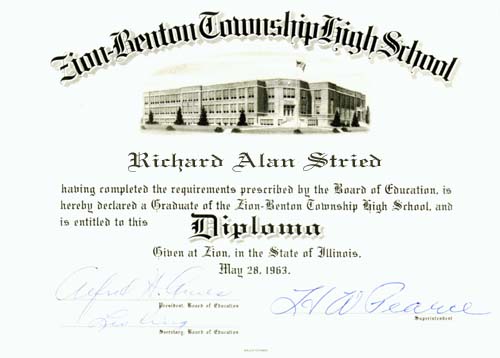 Zion-Benton Township High School
Richard Alan Stried
having completed the requirements prescribed by the Board of Education, is
hereby declared a Graduate of the Zion-Benton Township High School, and
is entitled to this Diploma
Given at Zion, in the State of Illinois,
May 28, 1963.
Alfred H.
President, Board of Education
H W Pearce
Superintendent
Secretary, Board of Education